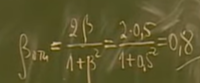 βотн = 2β / 1+β² = 2·0,5 / 1+0,5² = 0,8